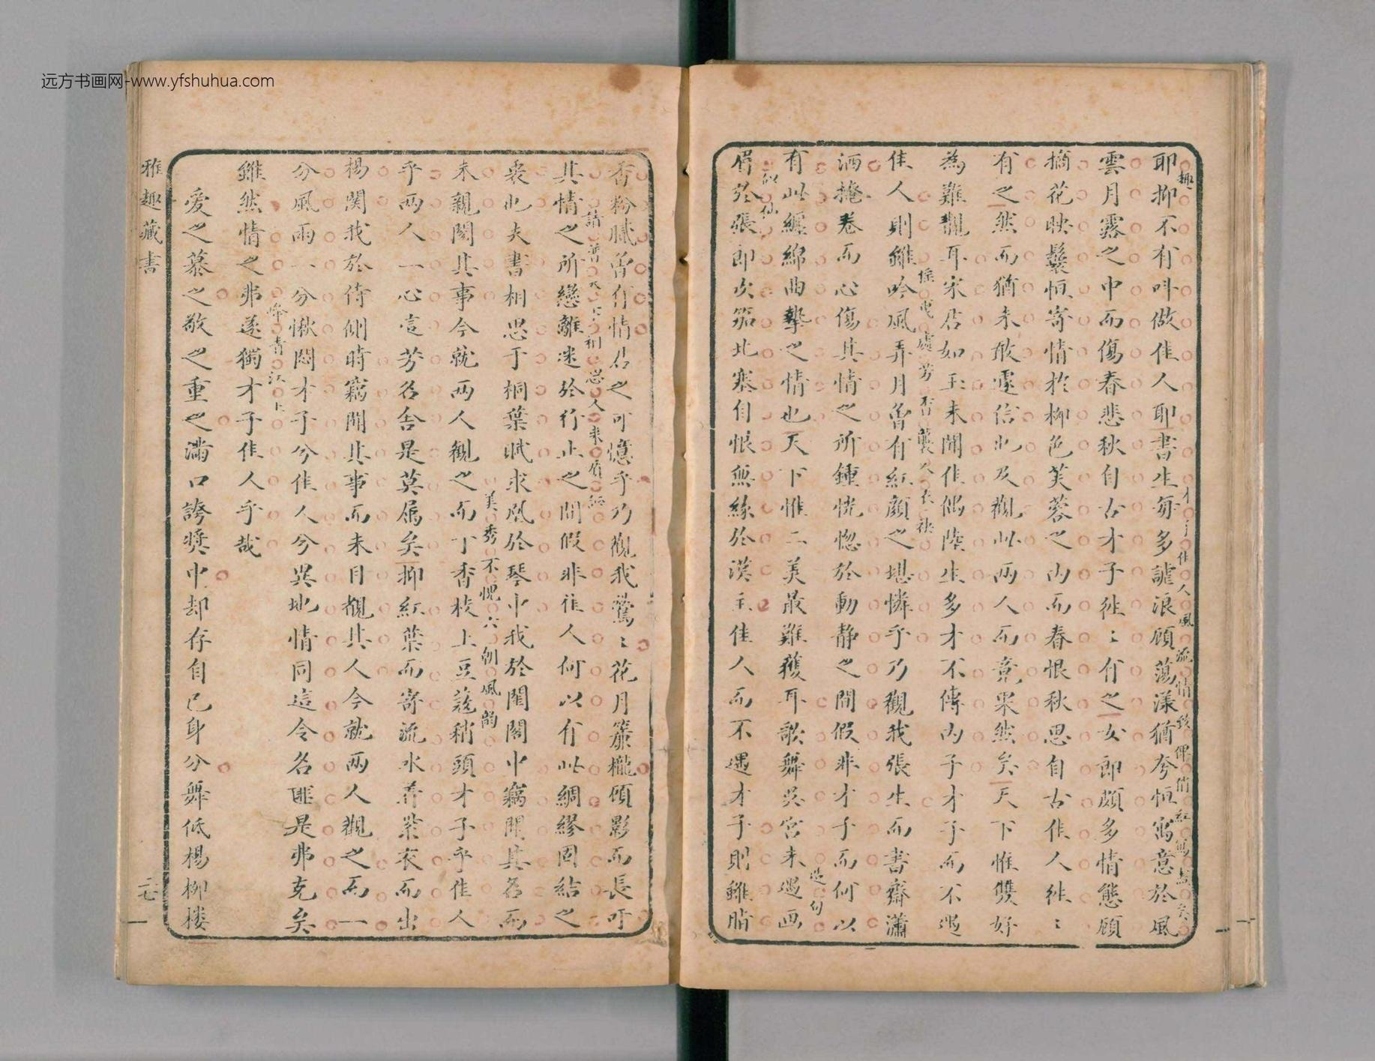 远方书画网-www.yfshuhua.com
耶抑不有叫做佳人耶書生每多謔浪顧蕩漾猶夸恒寓意於風
雲月露之中而傷春悲秋自古才子往〻有之女郎頗多情態顧
摘花映鬟恒寄情於柳色芙蓉之內而春恨秋思自古佳人往〻
有之然而猶未敢遽信也及觀此兩人而竟果然矣天下惟雙好
為難覯耳宋君如玉未聞佳偶陸生多才不傳內子才子而不遇
佳人則雖吟風弄月曾有紅顏之堪憐乎乃觀我張生而書齋瀟
洒掩卷而心傷其情之所鍾恍惚於動静之間假非才子而何以
有此纏綿曲摯之情也天下惟二美最難獲耳歌舞吳宮未遇画
眉於張郎吹笳北塞自恨無緣於漢主佳人而不遇才子則雖脂
香粉膩曾有情君之可憶乎乃觀我鶯〻花月簾櫳頎影而長吁
其情之所戀離迷於行止之間假非佳人何以有此綢繆固結之
衷也夫書相思于桐葉賦求凰於琴中我於閨閣中竊聞其名而
未親閱其事今就兩人觀之而丁香枝上豆蔻稍頭才子乎佳人
乎兩人一心言芳名舍是莫屬矣抑紅葉而寄流水弄紫衣而出
楊関我於侍側時竊聞其事而未目覩其人今就兩人觀之而一
分風雨一分愀悶才子兮佳人兮異地情同這令名匪是弗克矣
雖然情之弗遂獨才子佳人乎哉
愛之慕之敬之重之滿口誇獎中却存自已身分舞低楊柳楼
趣
才子佳人風流情致
恨屯虛芳香襲人衣袂
是句
似仙
美秀不愧六朝風韵
峰青江上
雅趣藏書
二七